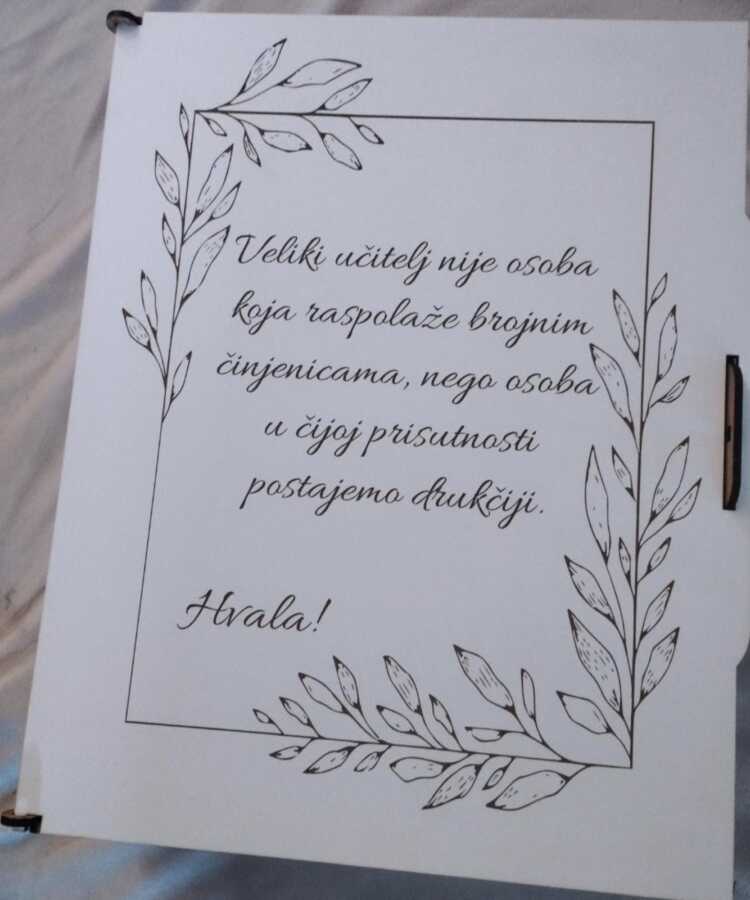 Veliki učitelj nije osoba
koja raspolaže brojnim
činjenicama, nego osoba
u čijoj prisutnosti
postajemo drukčiji.
Hvala!